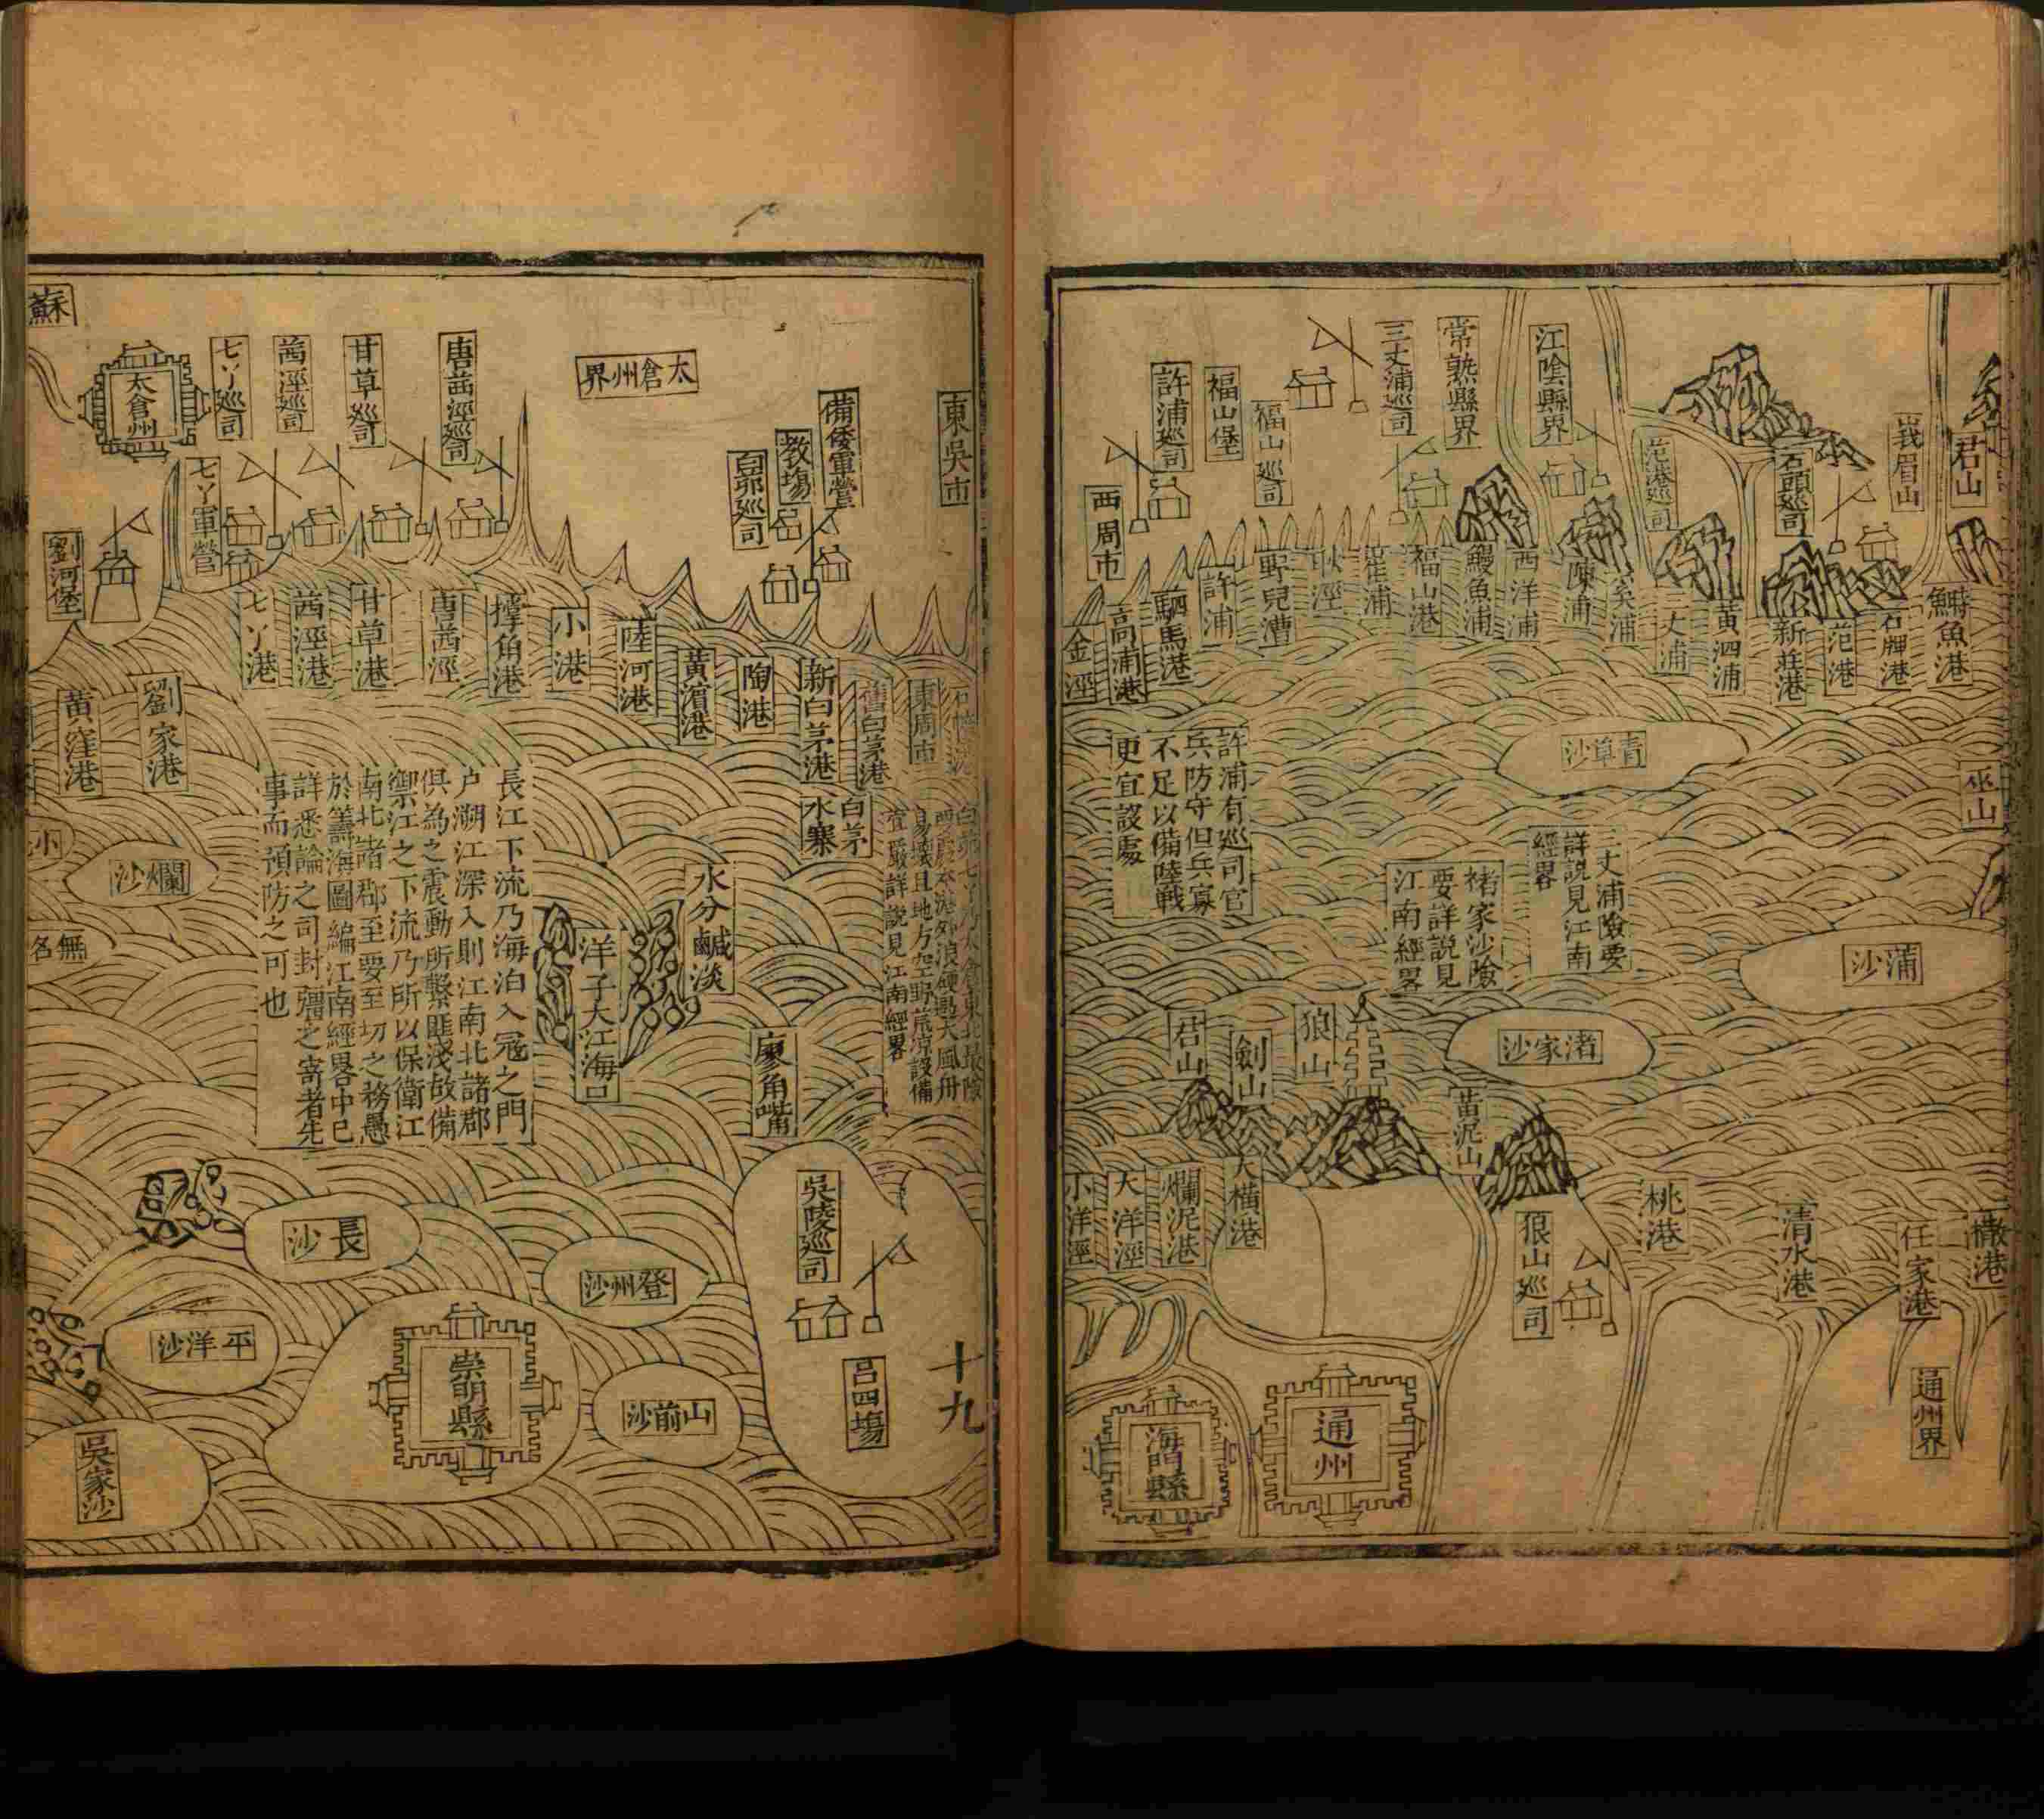 君山
峩眉山
石頭巡司
范港巡司
江陰縣界
常熟縣界
三丈浦巡司
福山巡司
福山堡
許浦巡司
西周市
鰣魚港
石牌港
范港
新莊港
黃泗浦
三丈浦
奚浦
陳浦
西洋浦
鰻魚浦
福山港
崔浦
耿涇
野兒漕
許浦
駟馬港
高浦港
金涇
巫山
青草沙
蒲沙
三丈浦險要
詳說見江南
經畧
褚家沙險
要詳說見
江南經畧
許浦有巡司官
兵防守但兵寡
不足以備陸戰
更宜設處
渚家沙
狼山
劍山
君山
苗泥山
狼山巡司
桃港
清水港
任家港
橵港
通州界
大橫港
爛泥港
大洋涇
小洋涇
通州
海門縣
東吳市
備倭軍營
教場
白茆巡司
太倉州界
唐茜涇巡司
甘草巡司
茜涇巡司
七丫巡司
太倉州
蘇
七丫軍營
劉河堡
東周市
舊白茅港
新白茅港
陶港
黃濱港
陸河港
小港
撐角港
唐茜涇
甘草港
茜涇港
七丫港
劉家港
黃窪港
白茅
水寨
易壞且地方空野荒凉設備
宜嚴詳說見江南經畧
水分鹹淡
洋子大江海口
廖角嘴
長江下流乃海泊入寇之門
户溯江深入則江南北諸郡
俱為之震動所繫匪淺故備
禦江之下流乃所以保衛江
南北諸郡至要至切之務愚
於籌海圖編江南經畧中已
詳悉論之司封疆之寄者先
事而預防之可也
爛沙
無名
吳陵巡司
呂四塲
十九
登州沙
山前沙
長沙
崇明縣
平洋沙
吳家沙